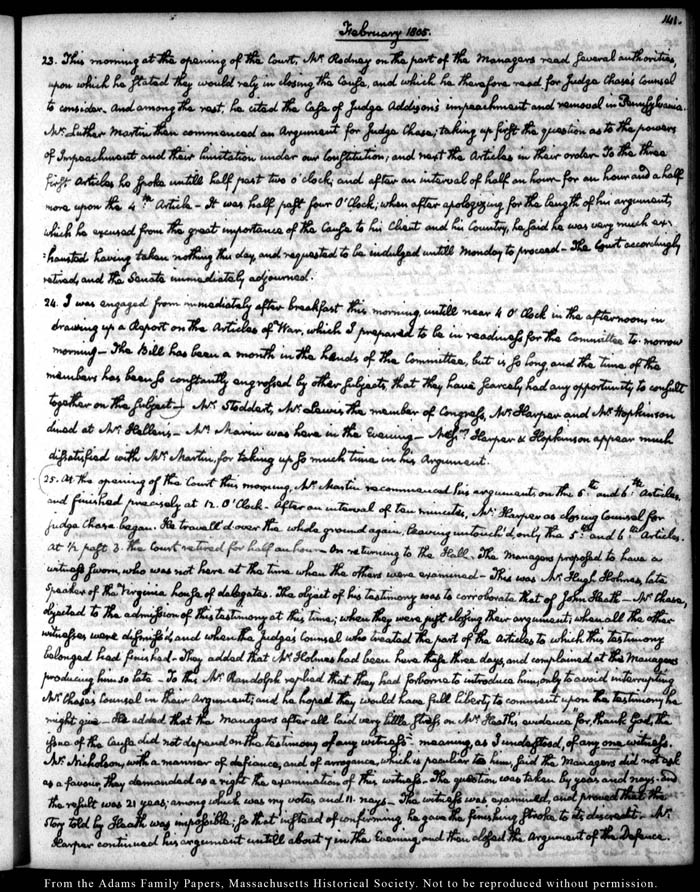 141.
February 1805.
23. This morning at the opening of the Court, Mr Rodney on the part of the Managers read several authorities,
upon which he stated they would rely in closing the Cause, and which he therefore read for Judge Chase's Counsel
to consider. And among the rest, he cited the Case of Judge Addison's impeachment and removal in Pennsylvania.
Mr Luther Martin then commenced an Argument for Judge Chase, taking up first the question as to the powers
of Impeachment and their limitation under our Constitution; and next the Articles in their order. To the three
first Articles he spoke untill half past two o'clock, and after an interval of half an hour for an hour and a half
more upon the 4th Article - It was half past four O'Clock; when after apologizing for the length of his argument,
which he excused from the great importance of the Cause to his Client and his Country, he said he was very much ex-
:hausted having taken nothing this day, and requested to be indulged untill Monday to proceed - The Court accordingly
retired, and the Senate immediately adjourned.
24. I was engaged from immediately after breakfast this morning, untill near 4 O'Clock in the afternoon, in
drawing up a Report on the Articles of War, which I prepared to be in readiness for the Committee to-morrow
morning - The Bill has been a month in the hands of the Committee, but is so long and the time of the
members has been so constantly engrossed by other subjects, that they have scarcely had any opportunity to consult
together on the subject - Mr Stoddert, Mr Lewis, the member of Congress, Mr Harper and Mr Hopkinson
dined at Mr Hellen's - Mr was here in the Evening - Messrs Harper & Hopkinson appear much
dissatisfied with Mr Martin, for taking up so much time in his Argument.
25. At the opening of the Court this morning, Mr Martin recommenced his argument, on the 5th and 6th Articles,
and finished precisely at 12. O'Clock. After an interval of ten minutes, Mr Harper as closing Counsel for
Judge Chase began. He travell'd over the whole ground again, leaving untouch'd only the 5th and 6th Articles.
At ½ past 3. the Court retired for half an hour - On returning to the Hall. The Managers proposed to have a
witness sworn, who was not here at the time when the others were examined - This was Mr Hugh Holmes, late
Speaker of the Virginia house of delegates. The object of his testimony was to corroborate that of John Heath - Mr Chase,
objected to the admission of this testimony at this time; when they were just closing their argument; when all the other
witnesses were dismiss'd, and when the Judges Counsel who treated the part of the Articles to which this testimony
belonged had finished - They added that Mr Holmes had been here these three days, and complained at the Managers
producing him so late - To this Mr Randolph replied that they had forborne to introduce him, only to avoid interrupting
Mr Chase's Counsel in their Argument; and he hoped they would have full liberty to comment upon the testimony he
might give - He added that the Managers after all laid very little stress on Mr Heath's evidence, for, thank God, the
issue of the Cause did not depend on the testimony of any witness: meaning, as I understood, of any one witness.
Mr Nicholson, with a manner of defiance, and of arrogance, which is peculiar to him, said the Managers did not ask
as a favour, they demanded as a right the examination of this witness - The question was taken by yeas and nays - and
the result was 21 yeas; among which was my vote; and 11. nays - The witness was examined, and proved that the
story told by Heath was impossible; so that instead of confirming, he gave the finishing stroke to its discredit - Mr
Harper continued his argument untill about 7 in the Evening, and then closed the Argument of the Defence.
From the Adams Family Papers, Massachusetts Historical Society. Not to be reproduced without permission.